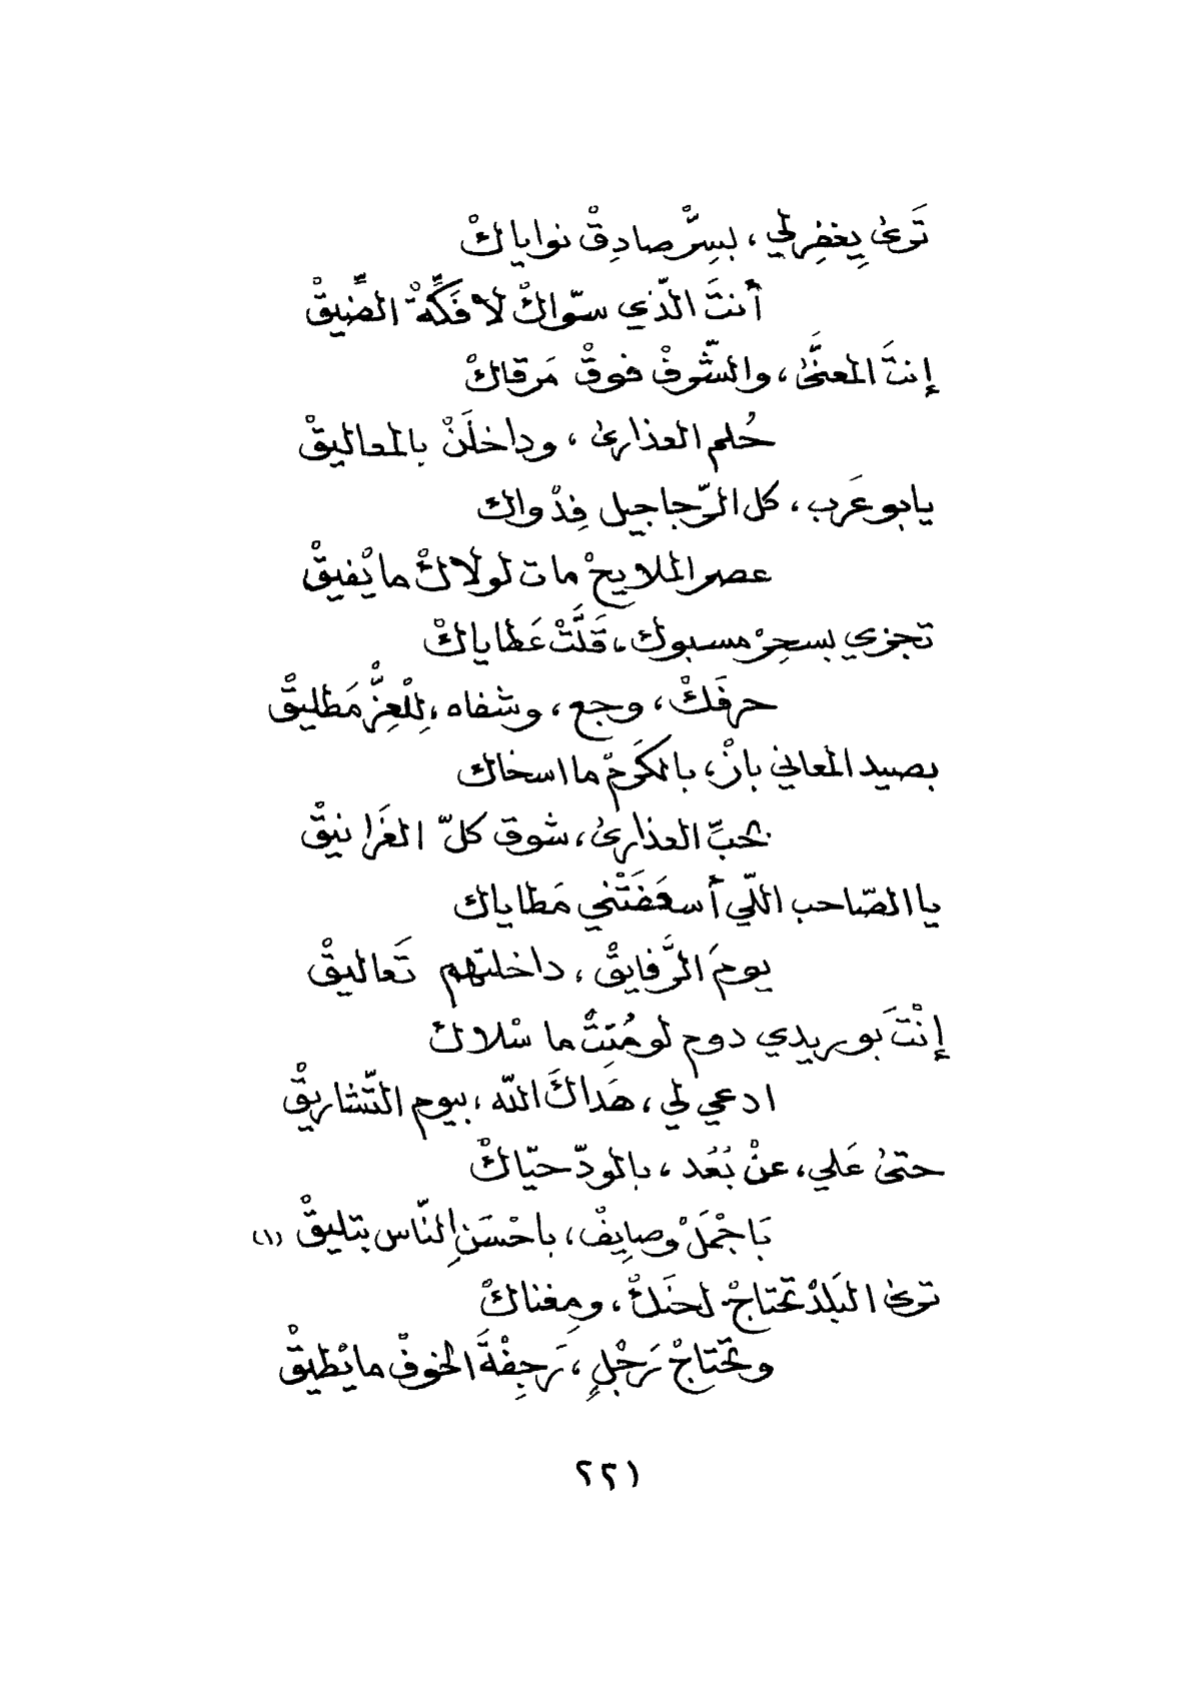 تَرىٰ يِغفِرلي ، بسِرّ صادِقْ نواياكْ
أنتَ الّذي سوّاكْ لا فَكِّةْ الضِّيقْ
إنتَ المعنَّىٰ ، والشّوفْ فوقْ مَرقاكْ
حُلم العذارىٰ ، وداخلَنْ بالمعاليقْ
يابو عَرب ، كل الرّجاجيل فِدْواك
عصر الملاويحْ مات لولاكْ ما يْفيقْ
تجزي بسحِرْ مسبوك ، قَلَّتْ عَطاياكْ
حرفَكْ ، وجع ، وشفاه ، لِلْعِزّْ مَطاليقْ
بصيد المعاني بازْ ، بالكَرَمْ ما اسخاك
بحُبِّ العذارىٰ ، شوق كلّ الغَرانيقْ
يا الصّاحب اللّي أسعَفَتْني مَطاياك
يومَ الرَّفايقْ ، داخلتهم تَعاليقْ
إنْتَ بو ريدي دوم لو مُتِتْ ما سْلاك
ادعي لي ، هَداكَ الله ، بيوم التّشاريقْ
حتىٰ عَلي ، عنْ بُعُد ، بالمودّ حيّاكْ
بَاجْمَلْ وصايِفْ ، باحْسَنِ النّاس بتليقْ (١)
ترىٰ البَلدْ تحتاجْ لحنَكْ ، ومِغناكْ
وتحتاجْ رَجْلٍ ، رَجِفْةَ الخوفْ ما يْطيقْ
٢٢١